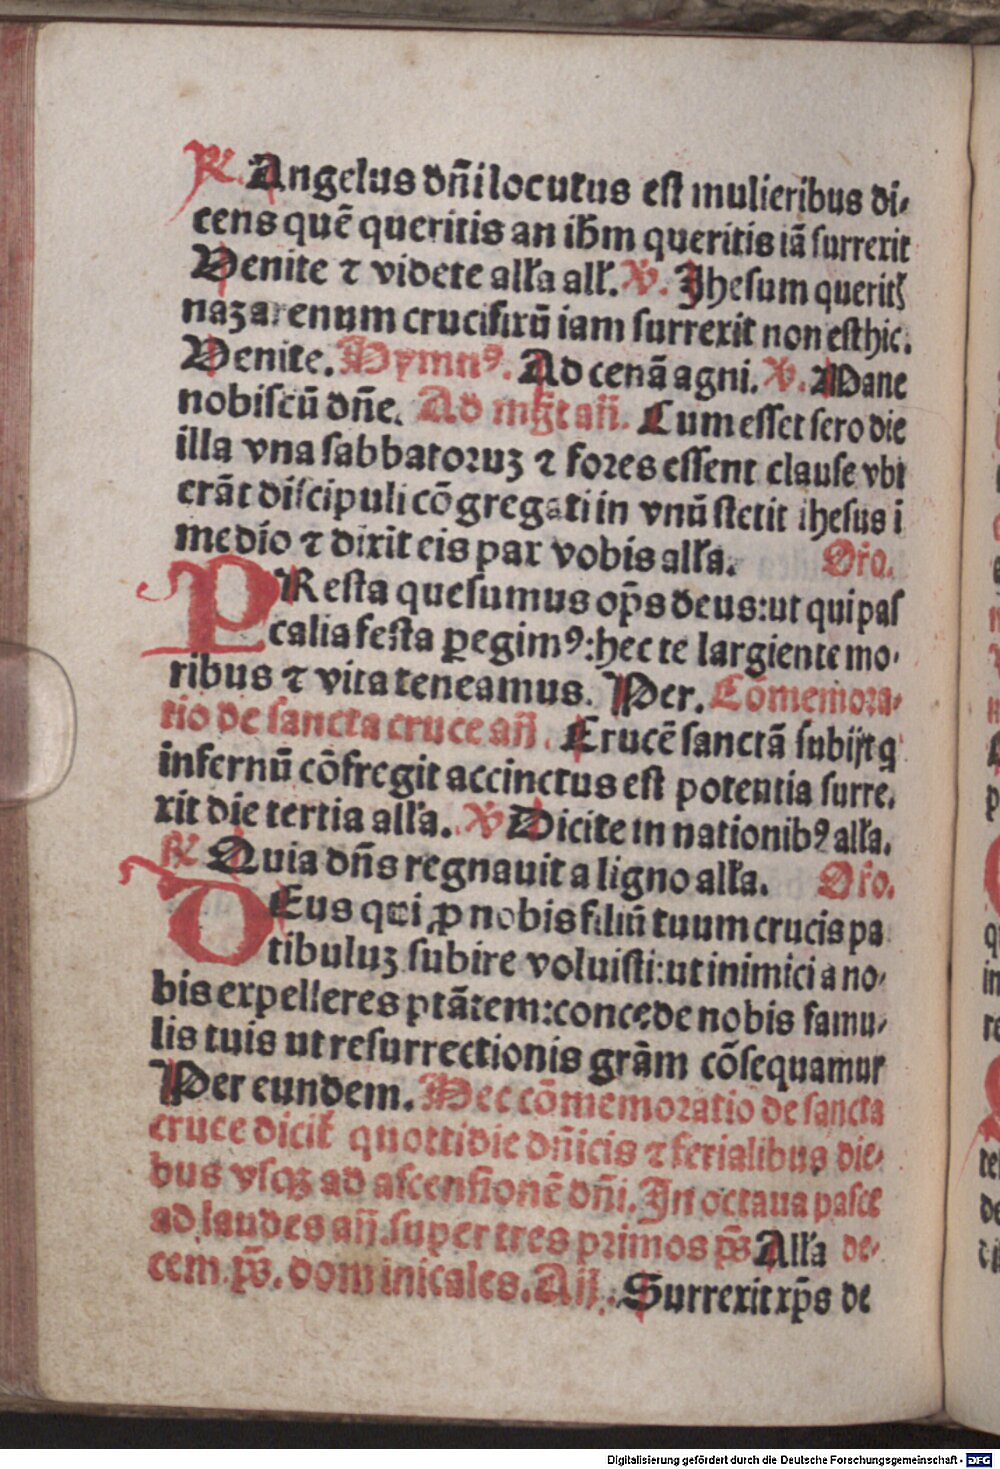 ℟. Angelus dñi locutus est mulieribus di⸗
cens quē queritis an ihm̄ queritis iā surrexit
Venite ⁊ videte alla all. ℣. Jhesum querit̉
nazarenum crucifixū iam surrexit non est hic.
Venite. Hymnꝰ. Ad cenā agni. ℣. Mane
nobiscū dñe. Ad mg̃t añ. Cum esset sero die
illa vna sabbatoruz ⁊ fores essent clause vbi
erāt discipuli cōgregati in vnū stetit ihesus i
medio ⁊ dixit eis pax vobis alla. Oro.
PResta quesumus op̄s deus: ut qui pas
calia festa ꝑegimꝰ: hec te largiente mo⸗
ribus ⁊ vita teneamus. Per. Cōmemora⸗
tio de sancta cruce añ. Crucē sanctā subijt q
infernū cōfregit accinctus est potentia surre⸗
xit die tertia alla. ℣ Dicite in nationibꝰ alla.
℟ Quia dñs regnauit a ligno alla. Oro.
DEus qui ꝓ nobis filiū tuum crucis pa
tibuluz subire voluisti: ut inimici a no⸗
bis expelleres ptātem: concede nobis famu⸗
lis tuis ut resurrectionis grām cōsequamur
Per eundem. Hec cōmemoratio de sancta
cruce dicit̉ quottidie dñicis ⁊ ferialibus die⸗
bus vsqꝫ ad ascensionē dñi. In octaua pasce
ad laudes añ. super tres primos ps̄ Alla de⸗
cem. ps̄. dominicales. Añ. Surrexit xp̄s de
Digitalisierung gefördert durch die Deutsche Forschungsgemeinschaft - DFG